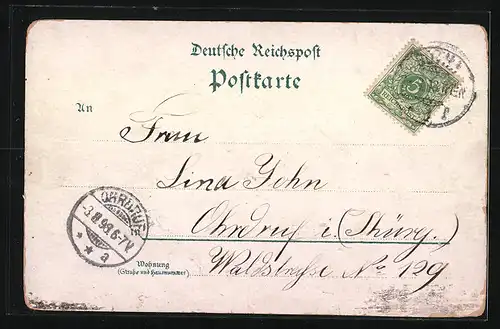 Deutsche Reichspost
Postkarte
An
Frau
Lina John
Ohrdruf i. (Thürg.)
Wohnung
(Straße und Hausnummer)
Waldstraße No 129
OHRDRUF
3.8.98.6-7V
* * a
5